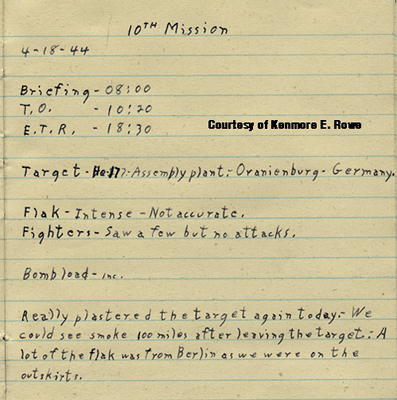 10TH Mission
4-18-44
Briefing - 08:00
T.O. - 10:20
E.T.R. - 18:30
Courtesy of Kenmore E. Rowe
Target - He-177 - Assembly plant - Oranienburg - Germany.
Flak - Intense - Not accurate.
Fighters - Saw a few but no attacks.
Bomb load - inc.
Really plastered the target again today. - We
could see smoke 100 miles after leaving the target. - A
lot of the flak was from Berlin as we were on the
outskirts.